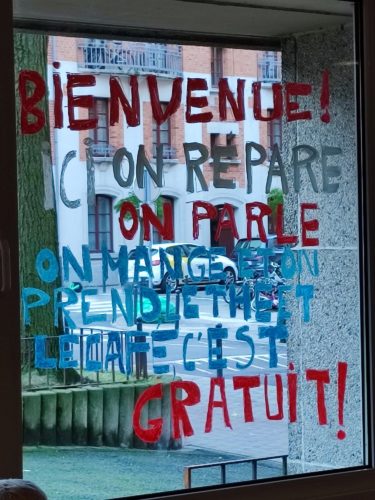 BIENVENUE!
ICI ON RÉPARE
ON PARLE
ON MANGE ET ON
PREND LE THÉ ET
LE CAFÉ, C'EST
GRATUIT!